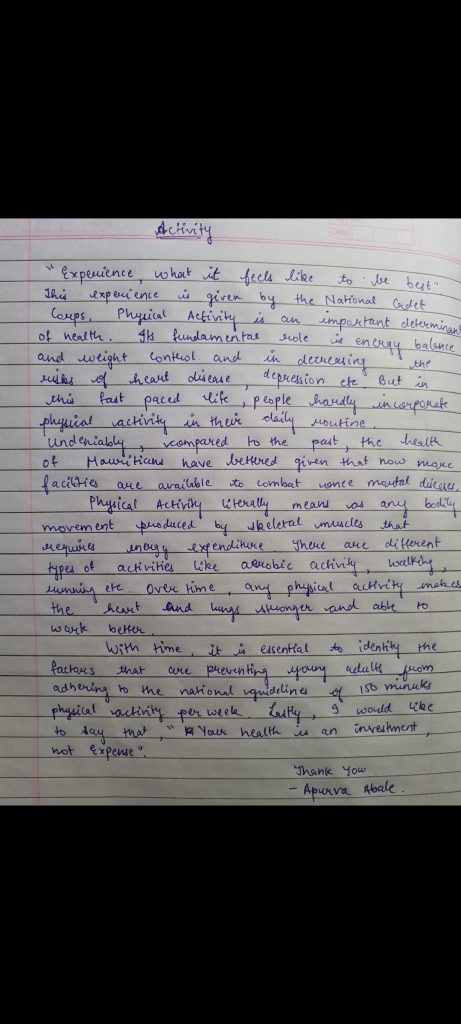 Activity
"Experience, what it feels like to be best"
This experience is given by the National Cadet
Corps. Physical Activity is an important determinant
of health. Its fundamental role is energy balance
and weight control and in decreasing the
risks of heart disease, depression etc. But in
this fast paced life, people hardly incorporate
physical activity in their daily routine.
Undeniably, compared to the past, the health
of Mauritians have bettered given that now more
facilities are available to combat once mortal
Physical Activity literally means as any bodily
movement produced by skeletal muscles that
requires energy expenditure. There are different
types of activities like aerobic activity, walking,
running etc. Over time, any physical activity makes
the heart and lungs stronger and able to
work better.
With time, it is essential to identity the
factors that are preventing young adults from
adhering to the national guidelines of 150 minutes
physical activity per week. Lastly, I would like
to say that, "Your health is an investment,
not Expense".
Thank You.
- Apurva Abale.